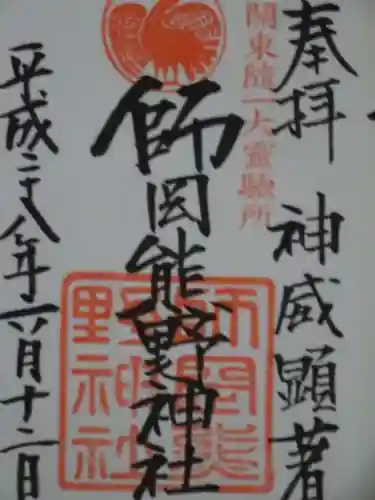 奉拝 神威顕著
關東随一大霊験所
師岡熊野神社
師岡熊野神社
平成二十八年一月十二日